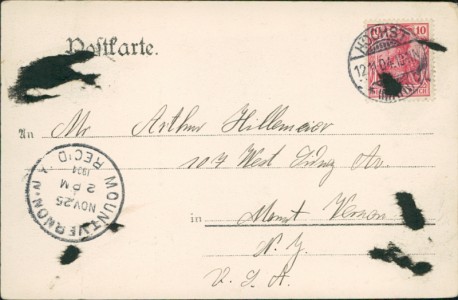 Postkarte.
HÖCHST
12.11.04
10
An Mr Arthur Hillemeier
107 West Sidney Av.
in Mount Vernon
N. Y.
U. S. A.
MOUNT VERNON N.Y.
NOV 25
2 PM
1904
REC'D